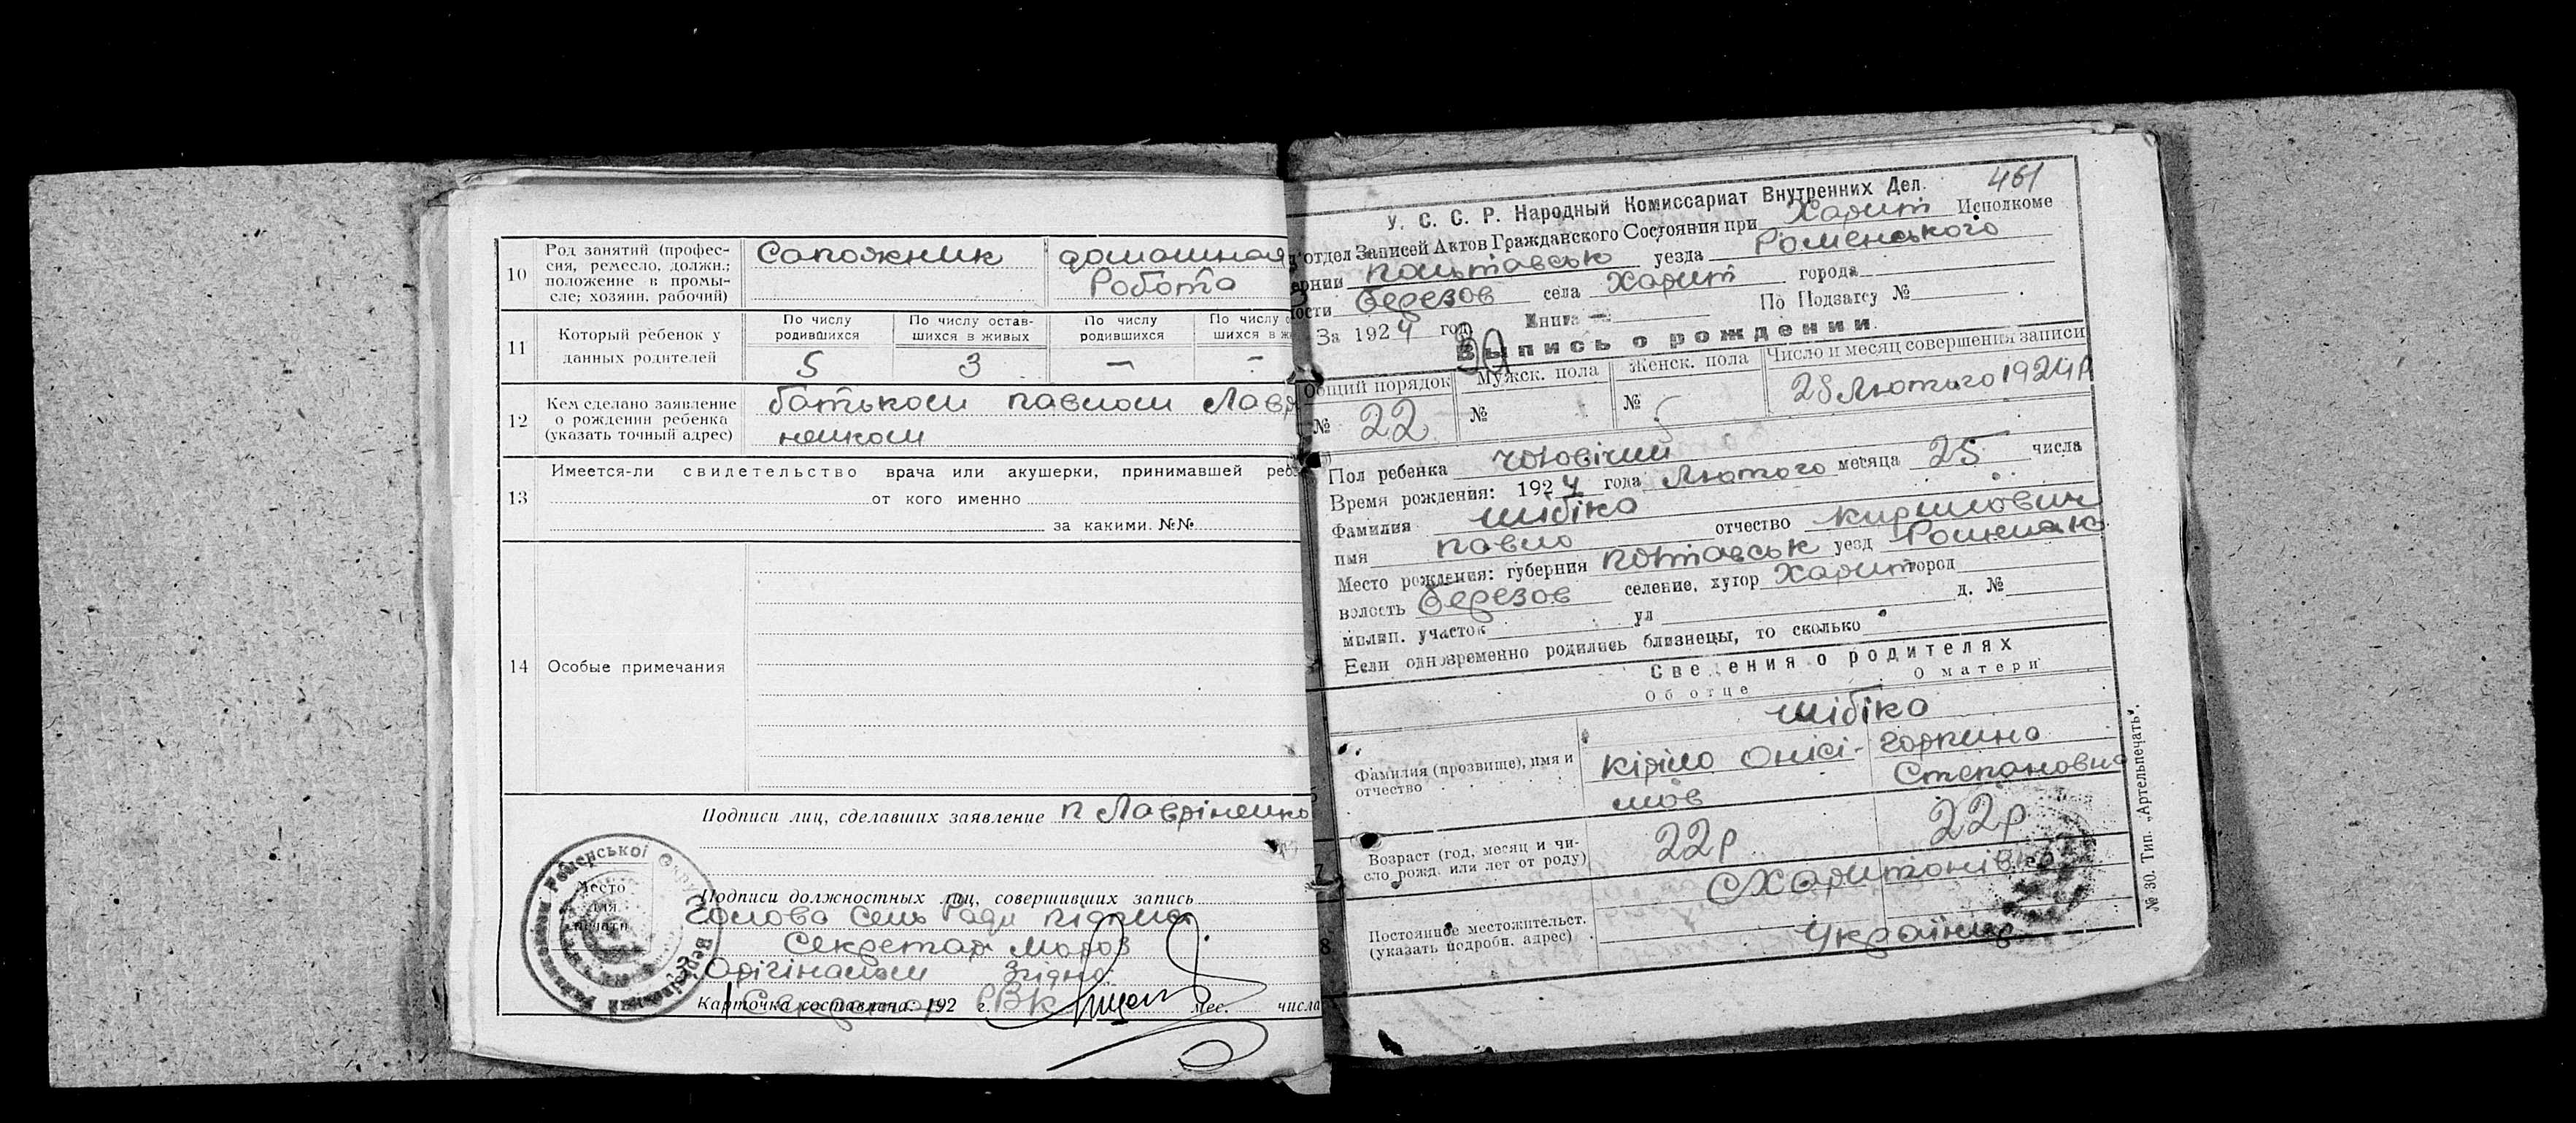 10 Род занятий (профес-
сия, ремесло, должн.;
положение в промы-
сле; хозяин, рабочий)
Сапожник домашная
Робота
11 Который ребенок у
данных родителей
По числу
родившихся
По числу остав-
шихся в живых
По числу
родившихся
По числу
шихся в
5 3 — -
12 Кем сделано заявление
о рождении ребенка
(указать точный адрес)
батьком павлом Лавр
ненком
13 Имеется-ли свидетельство врача или акушерки, принимавшей реб
от кого именно
за какими №№
14 Особые примечания
Подписи лиц, сделавших заявление п Лавріненко
Место
для
печати
Подписи должностных лиц, совершивших запись
Голова Сель Ради підпис
Секретар Мороз
Орігіналом Згідно
Карточка составлена: 192 г. мес. числа
461
У. С. С. Р. Народный Комиссариат Внутренних Дел.
отдел Записей Актов Гражданского Состояния при Харит Исполкоме
ернии Полтавськ уезда Роменського
ости Березов села Харит города
За 1924 год Книга — По Подзагсу №
30
Выпись о рождении.
Общий порядок Мужск. пола Женск. пола Число и месяц совершения записи
№ 22 № № 28 Лютого 1924р
Пол ребенка чоловічий
Время рождения: 1924 года Лютого месяца 25 числа
Фамилия Шібіко
имя Павло отчество Кирилович
Место рождения: губерния Полтавськ уезд
волость Березов селение, хутор Харит город
милиц. участок ул д. №
Если одновременно родились близнецы, то сколько
Сведения о родителях
Об отце О матери
Шібіко
7 Фамилия (прозвище), имя и
отчество
Кіріло Онісі- Горпина
мов Степановна
Возраст (год, месяц и чи-
сло рожд. или лет от роду)
22р 22р
8 Постоянное местожительст.
(указать подробн. адрес)
С Харитонівка
Українці
№ 30. Тип. „Артельпечать".